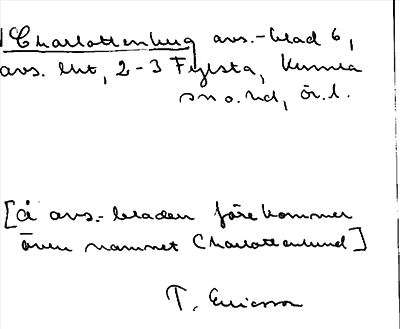 Charlottenberg avs.-blad 6,
avs. lht, 2-3 Fylsta, Kumla
sn o. hd, ör. l.
[å avs.-bladen förekommer
även namnet Charlottenlund]
T. Ericsson